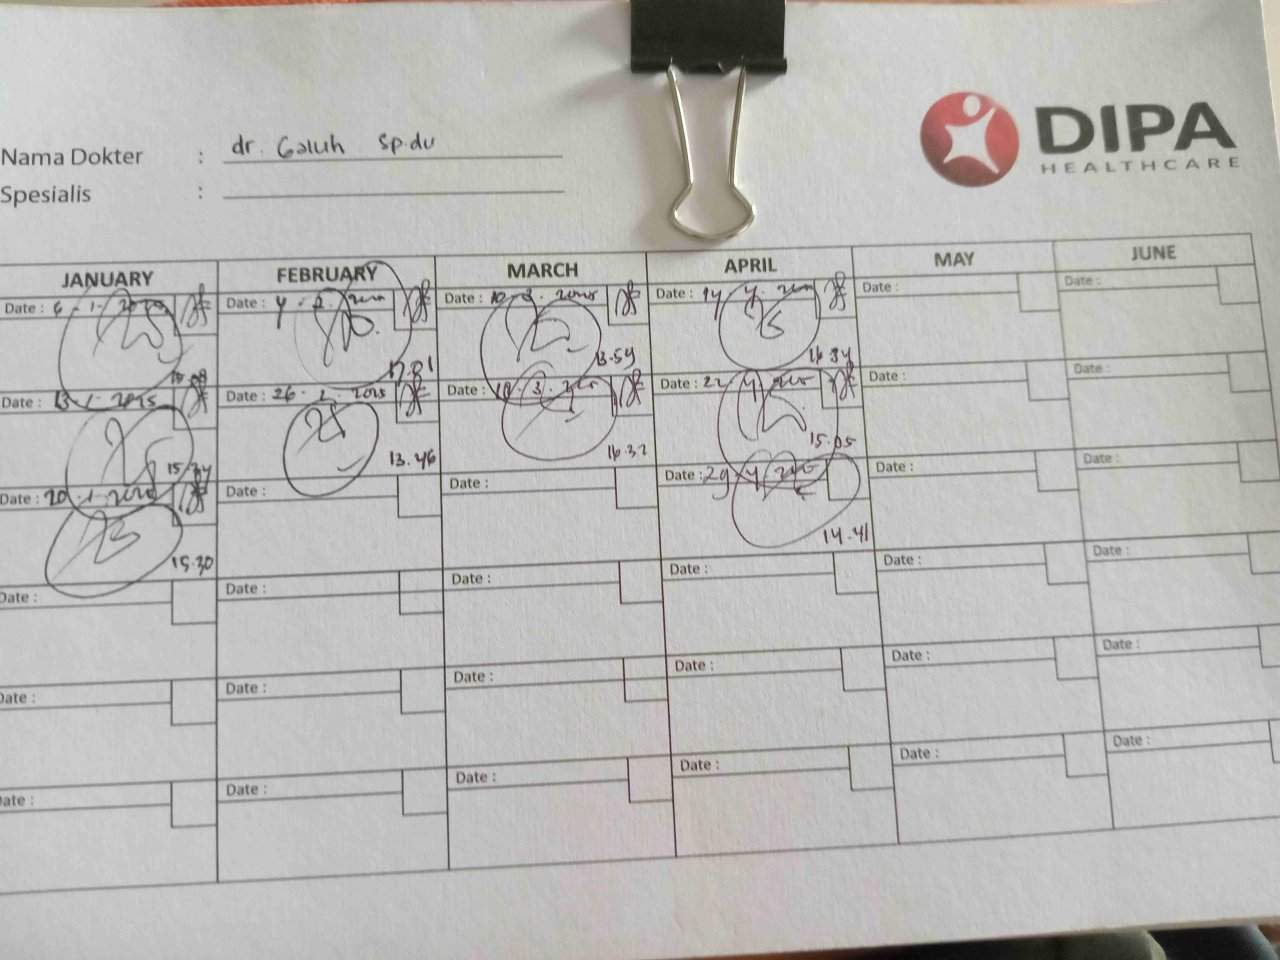 Nama Dokter : dr. Galuh Sp.du
Spesialis :
DIPA
HEALTHCARE
JANUARY FEBRUARY MARCH APRIL MAY JUNE
Date : 6 - 1 - 2025 Date : 4 - 2 - Date : 10 - 3 - 2025 Date : 14 Date : Date :
17.01 13.54 16.34
Date : 13 - 1 - 2025 Date : 26 - 2 - 2025 Date : 18 - 3 - Date : 22 Date : Date :
15.34 13.46 16.32 15.05
Date : 20 - 1 - 2025 Date : Date : Date : 29 Date : Date :
15.30 14.41
Date : Date : Date : Date : Date : Date :
Date : Date : Date : Date : Date : Date :
Date : Date : Date : Date : Date : Date :